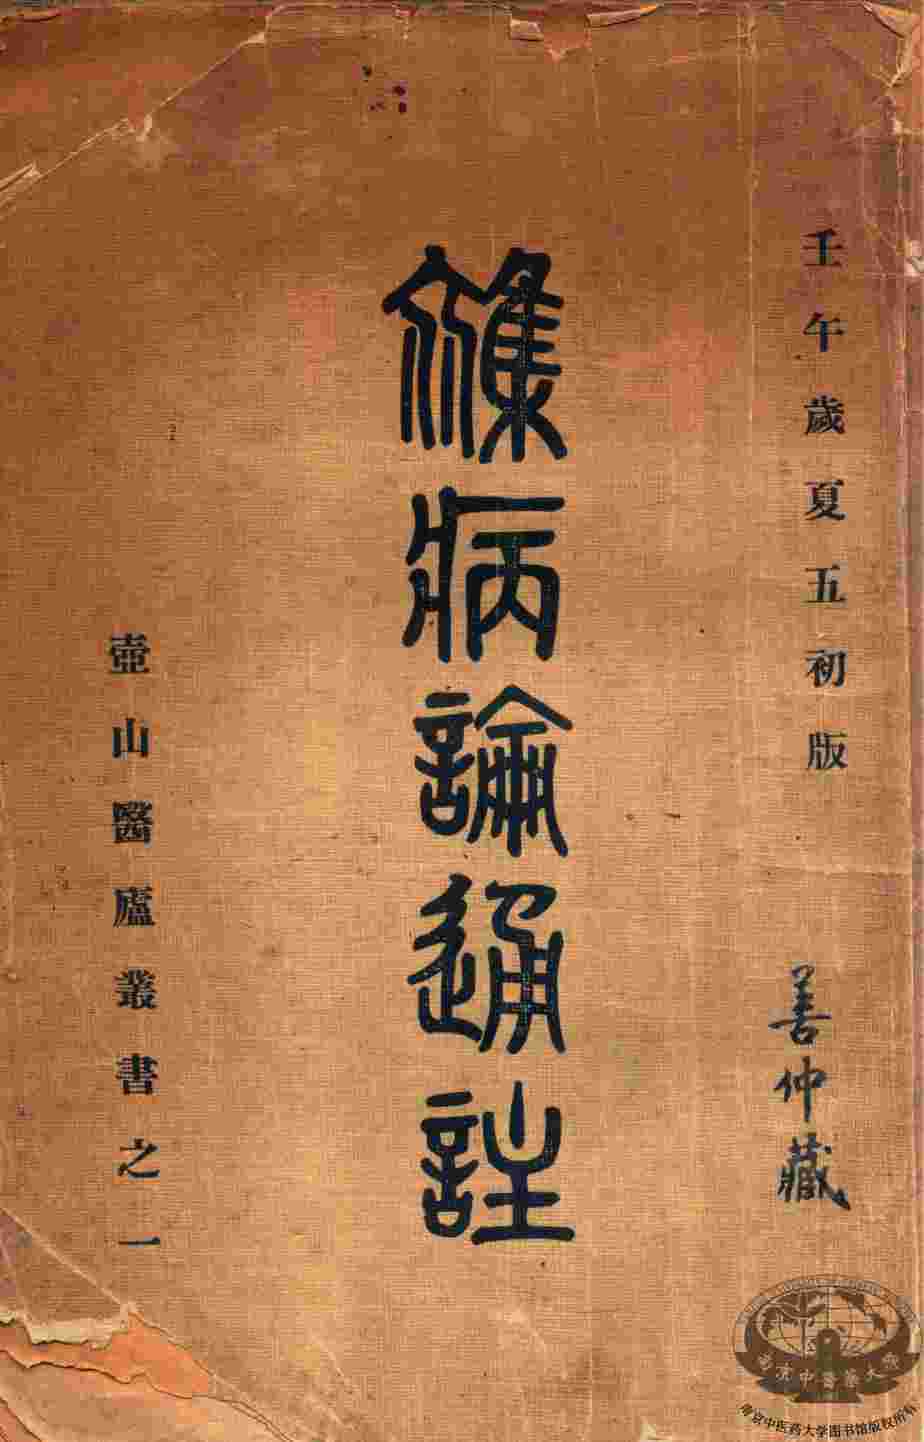 壬午歲夏五初版
善仲藏
襍病論通註
壺山醫廬叢書之一
南京中醫藥大
南京中医药大学图书馆版权所有